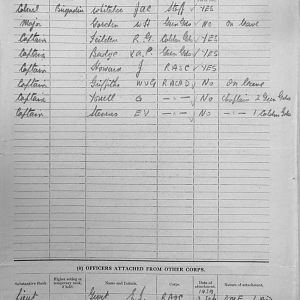 Colonel Brigadier Whitelee J.A.C. Staff YES
Major W.A. Gren Gds NO on leave
Captain R.G. Coldm Gds YES
Captain Budge Gren Gds YES
Captain Howard J RASC YES
Captain Griffiths W.V.G RAChD NO On leave
Captain Yowell G -"- NO Chaplain 2 Gren Gds
Captain Stevens E V -"- NO -"- 1 Coldm Gds
(6) OFFICERS ATTACHED FROM OTHER CORPS.
Substantive Rank Higher acting or temporary rank, if held. Name and Initials. Corps. Date of attachment. Nature of attachment.
1939
Lieut RAOC